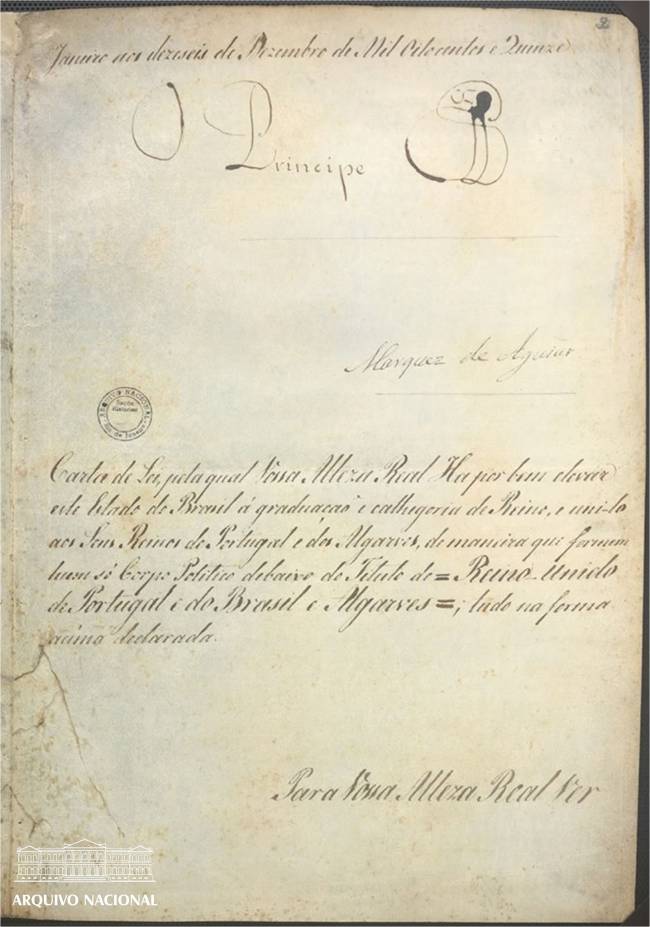 2
Janeiro aos dezeseis de Dezembro de Mil Oitocentos e Quinze
O Principe
Marquez de Aguiar
ARQUIVO NACIONAL
Secção Historica
Rio de Janeiro
Carta de Lei, pela qual Vossa Alteza Real Ha por bem elevar
este Estado do Brasil á graduação e cathegoria de Reino, e uni-lo
aos Seus Reinos de Portugal e dos Algarves, de maneira que formem
hum só Corpo Politico debaixo do Titulo de = Reino Unido
de Portugal e do Brasil e Algarves =; tudo na forma
acima declarada.
Para Vossa Alteza Real Ver
ARQUIVO NACIONAL